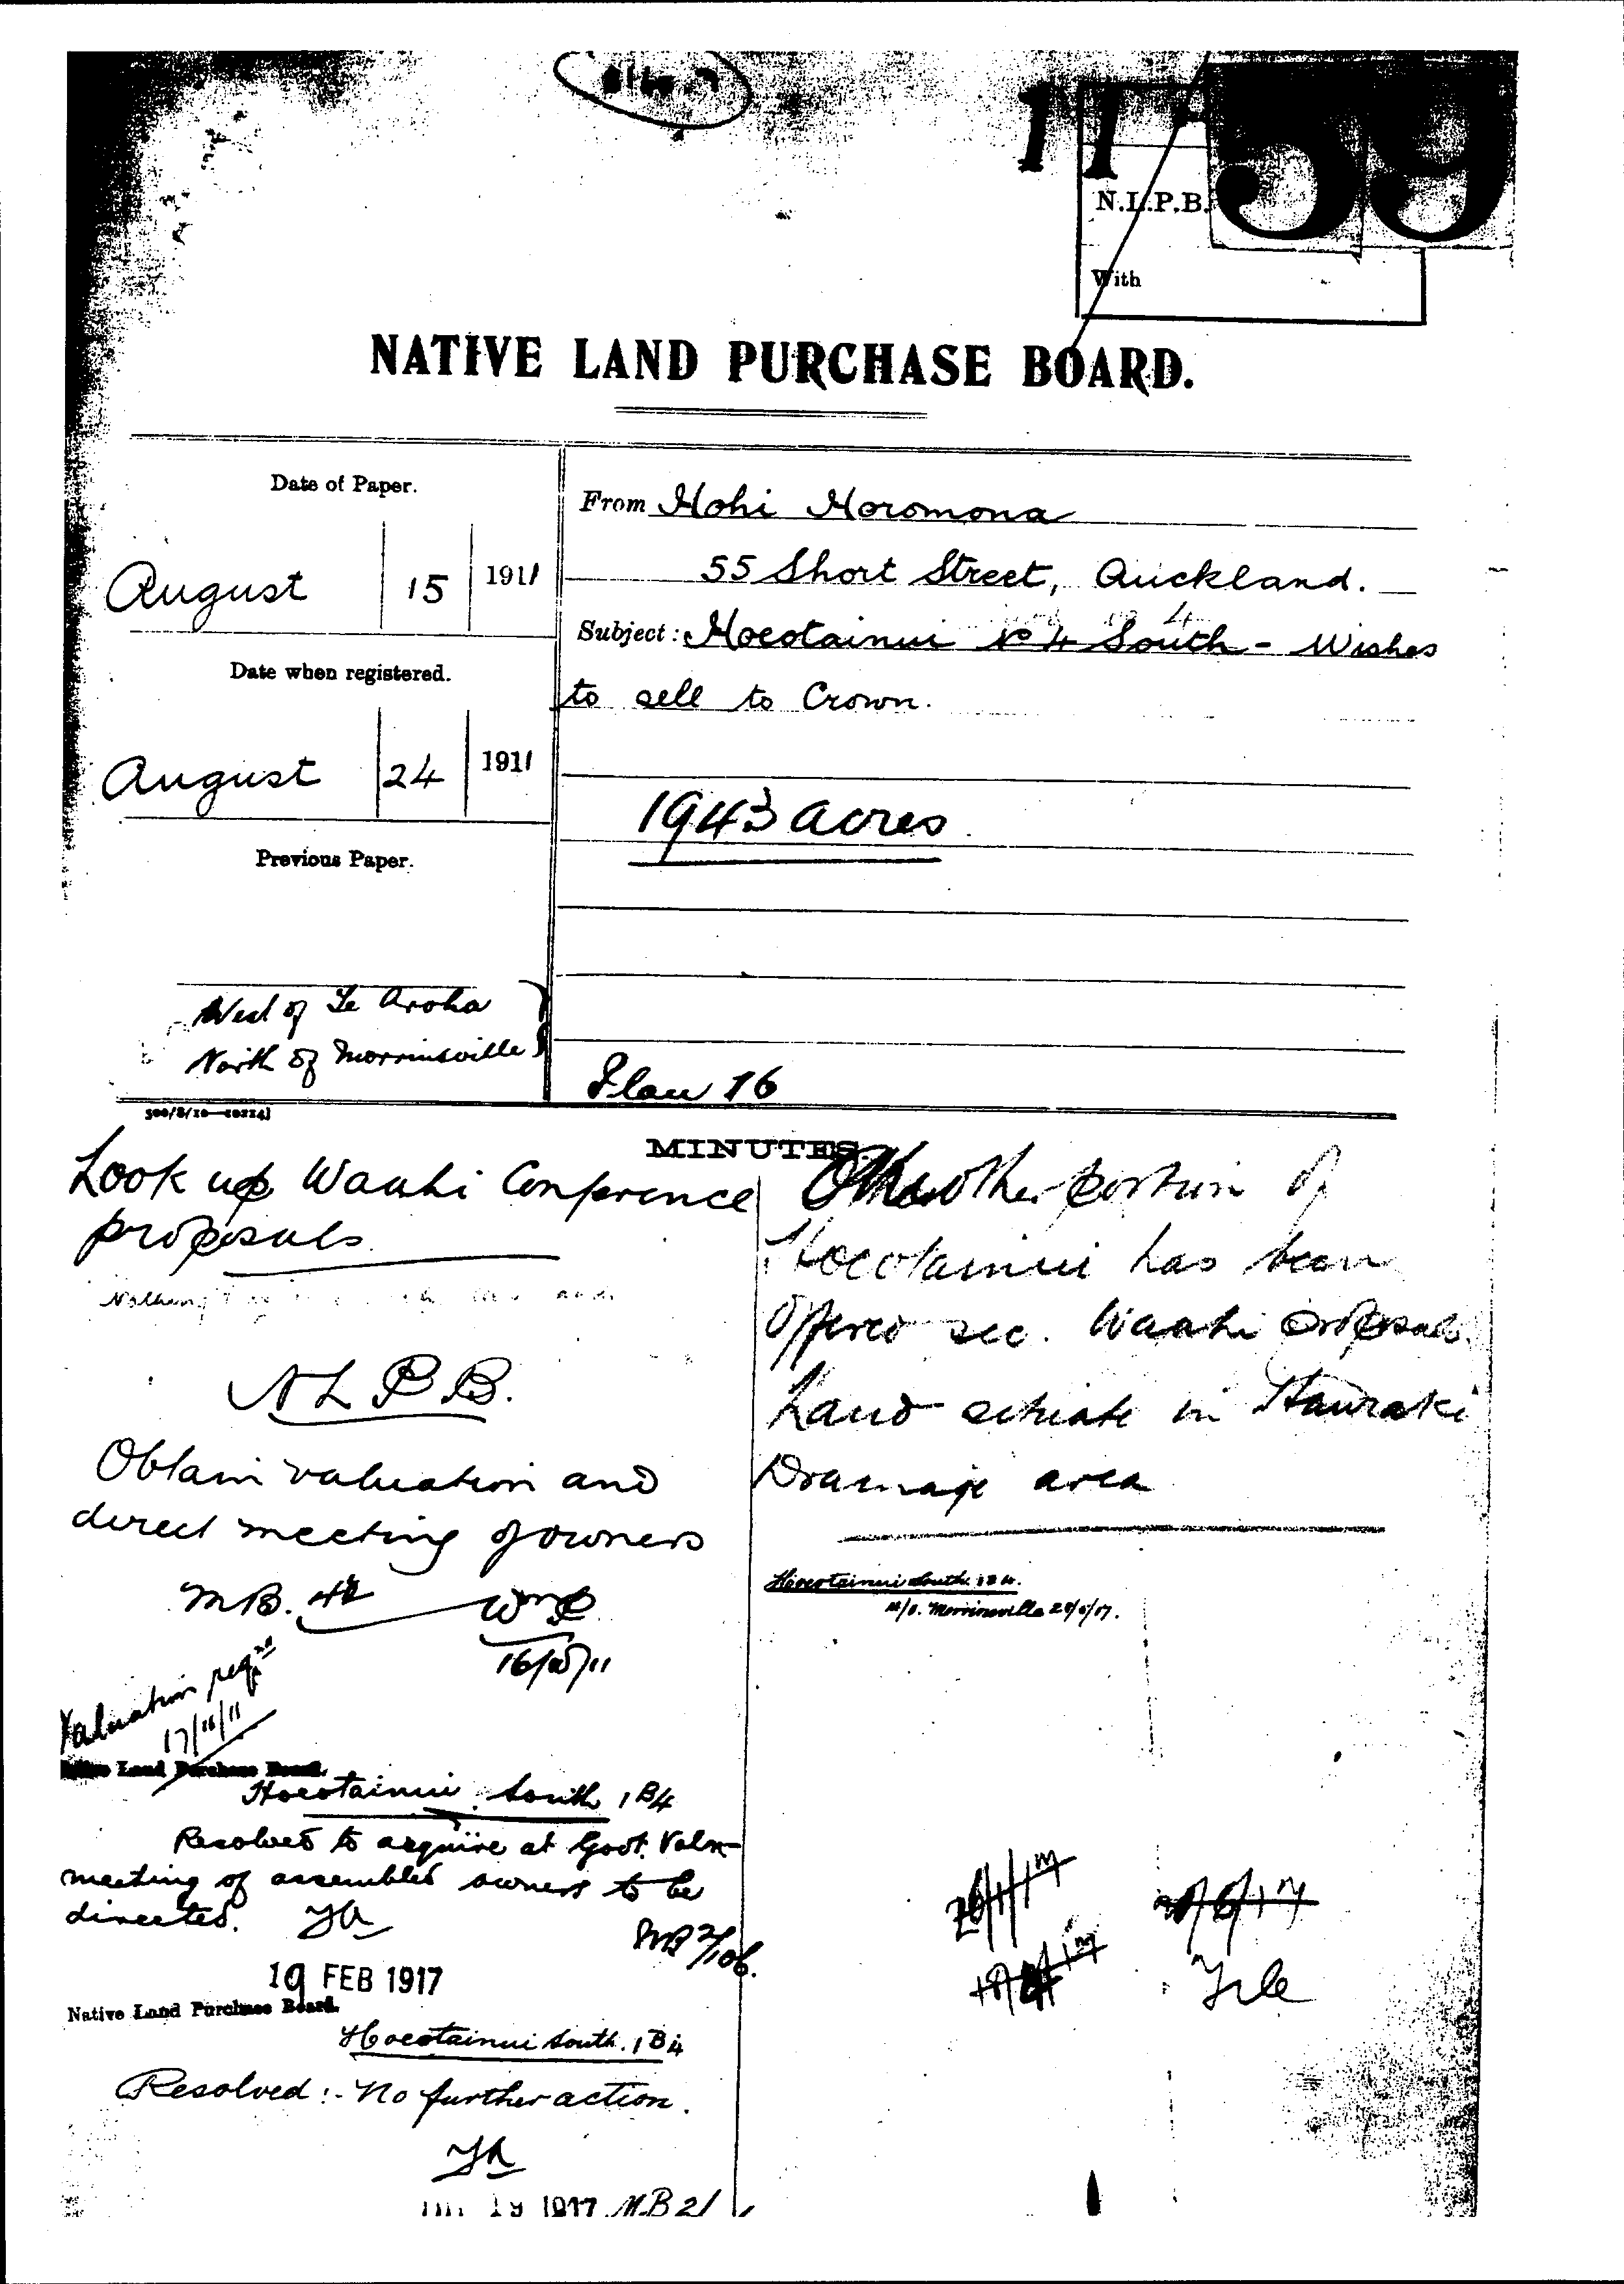 11 59
N.L.P.B.
With
NATIVE LAND PURCHASE BOARD.
Date of Paper.
August 15 1911
Date when registered.
August 24 1911
Previous Paper.
West of Te Aroha
North of Morrinsville
From Hohi Horomona
55 Short Street, Auckland.
Subject: Hoeotainui No 4 South - Wishes
to sell to Crown.
1943 acres
Plan 16
MINUTES.
Look up Waahi Conference
proposals
Nothing
N L P B.
Obtain valuation and
direct meeting of owners
M B.
16/10/11
Valuation reqd
17/10/11
Native Land Purchase Board.
Hoeotainui South 1B4
Resolved to acquire at Govt. Valn
meeting of assembled owners to be
directed.
MB 2/106.
19 FEB 1917
Native Land Purchase Board.
Hoeotainui South. 1B4
Resolved :- No further action.
19 1917 M.B 2/
other portion of
Hoeotainui has been
offered see. Waahi proposals.
Land situate in Hauraki
Drainage area
Hoeotainui South. 1B4.
M/O. Morrinsville 28/6/17.
26/1/17
File